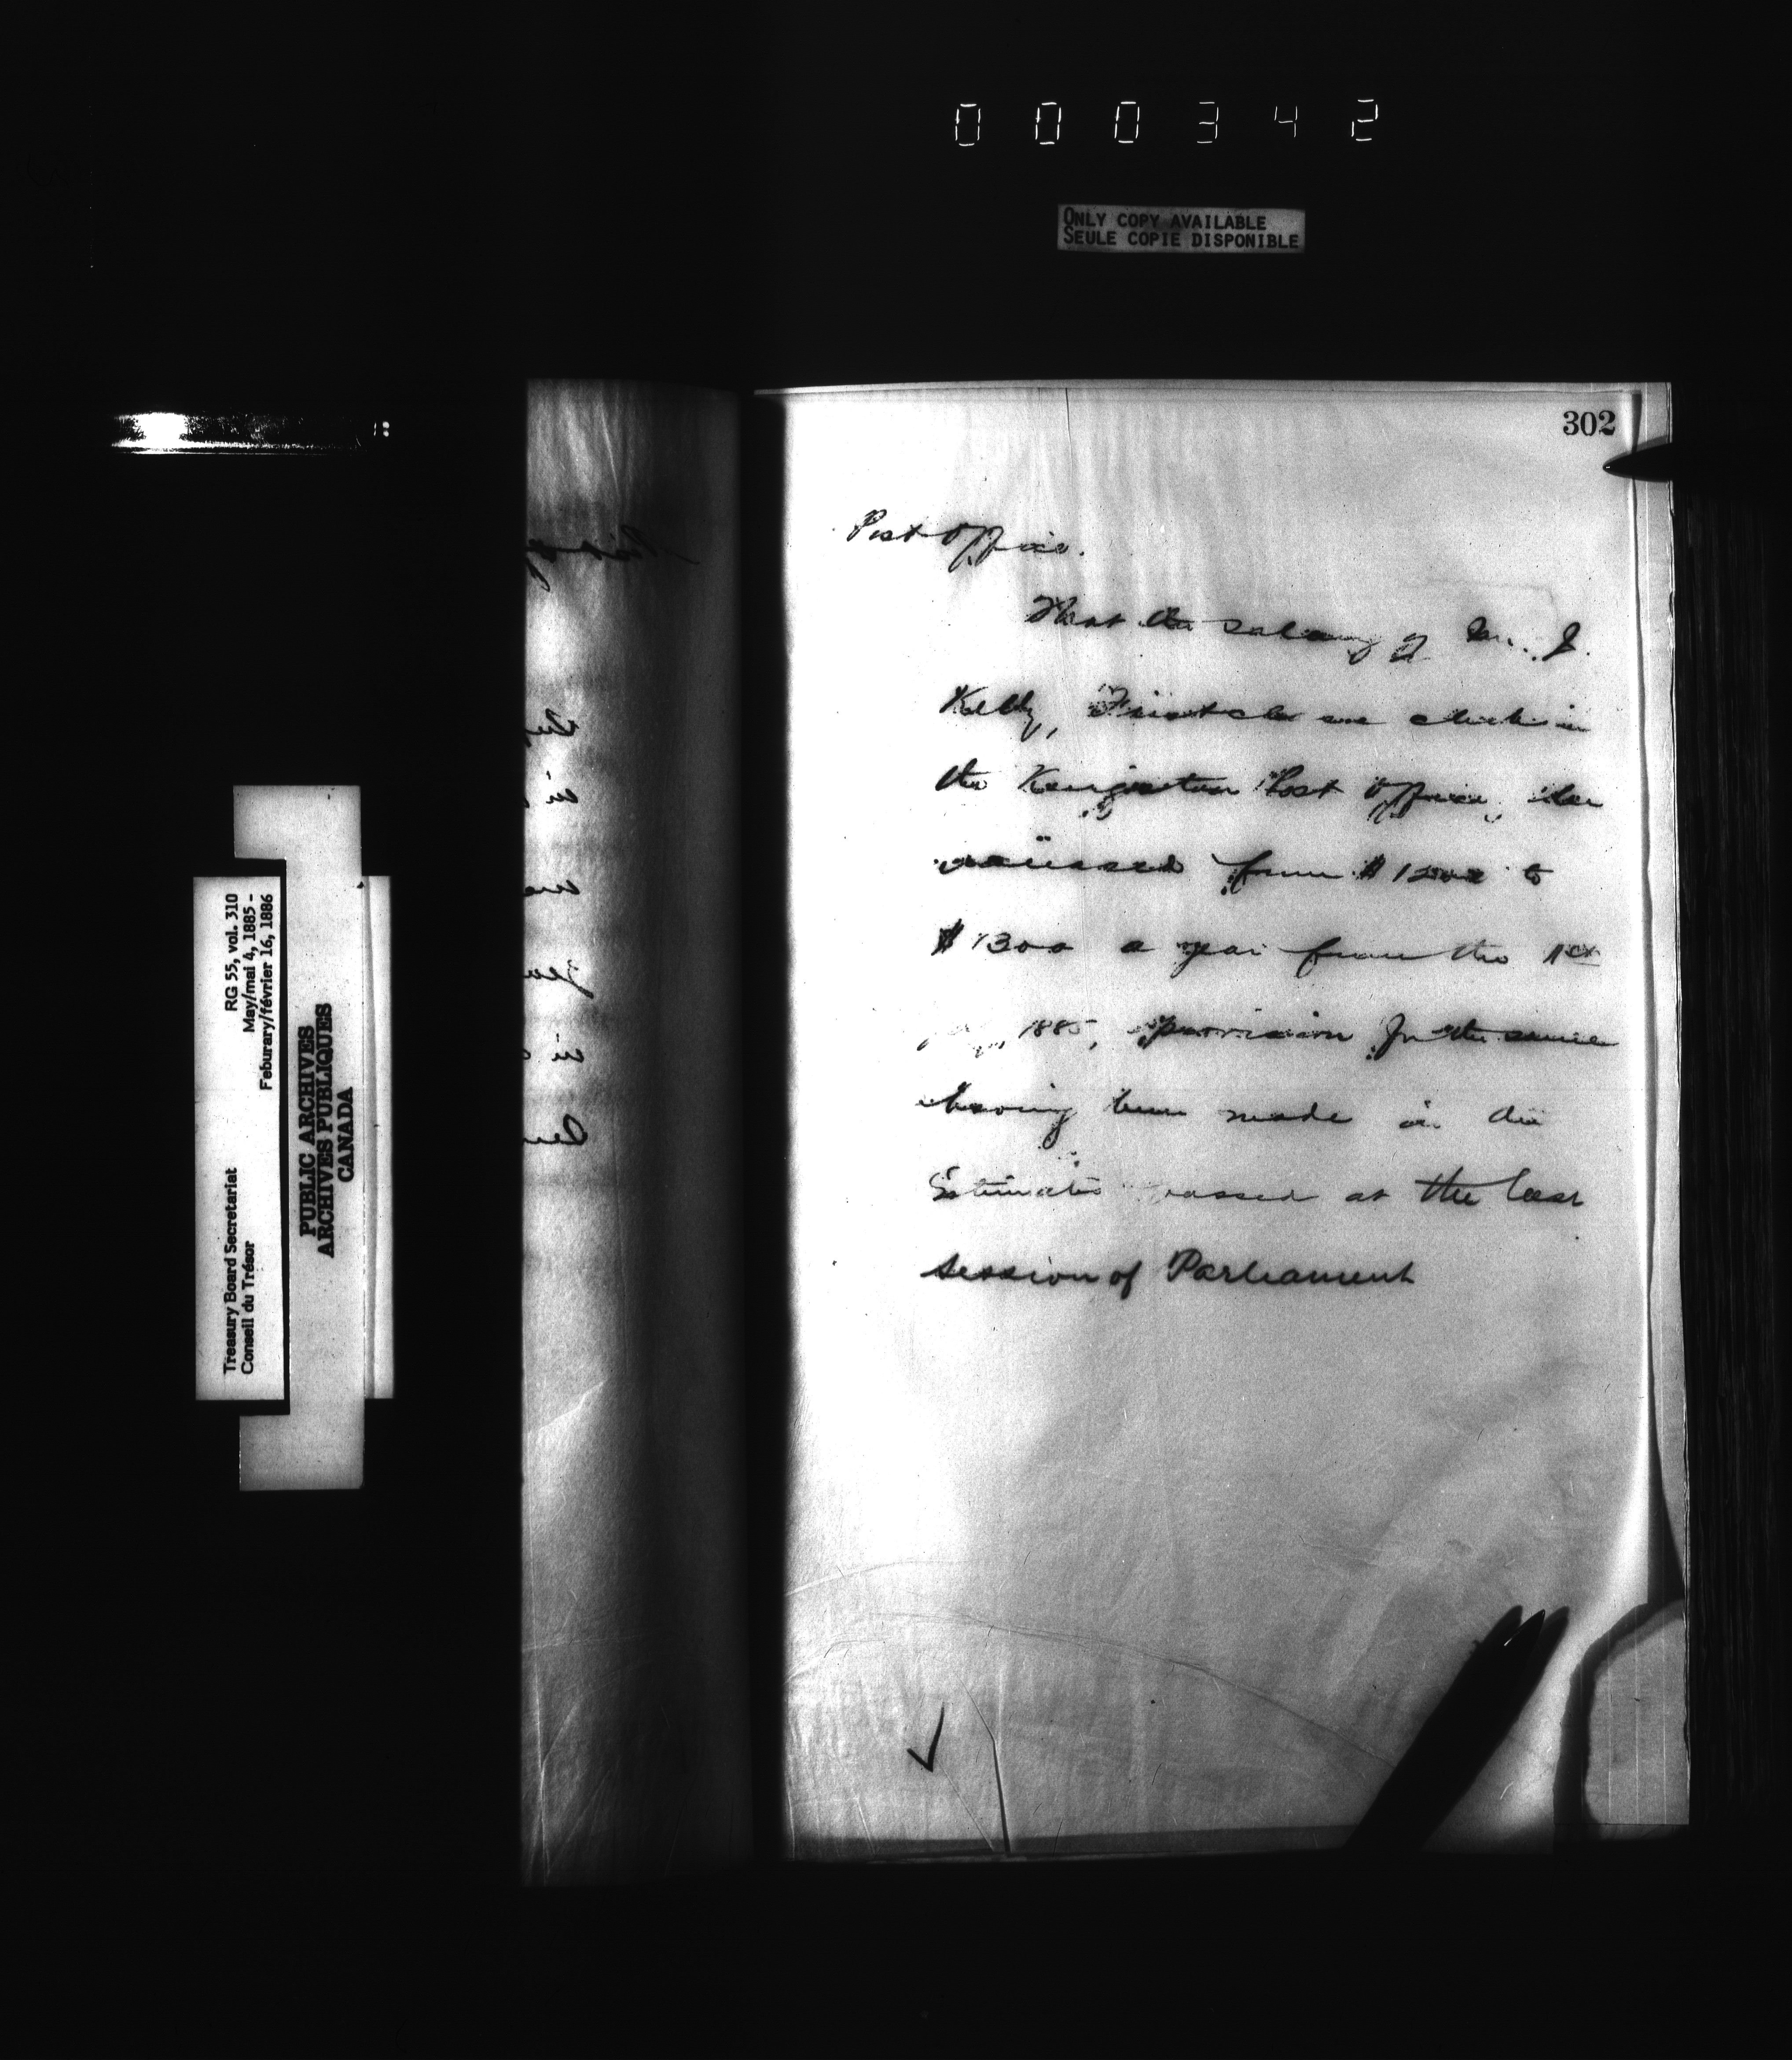 000342
ONLY COPY AVAILABLE
SEULE COPIE DISPONIBLE
302
Post Office.
That the salary of Mr. J.
Kelly, First class clerk in
the Kingston Post Office, be
increased from $1200 to
$1300 a year from the 1st
July, 1885, provision for the same
having been made in the
Estimates passed at the last
session of Parliament
Treasury Board Secretariat RG 55, vol. 310
Conseil du Trésor May/mai 4, 1885 -
Feburary/février 16, 1886
PUBLIC ARCHIVES
ARCHIVES PUBLIQUES
CANADA